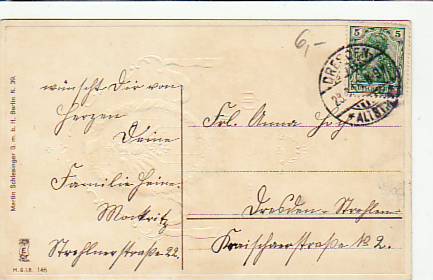 6,-
wünscht Dir von
Herzen
Deine
Familie Heine.
Mockritz
Strehlnerstraße 22.
Frl. Anna
Dresden-Strehlen
straße № 2.
DRESDEN
ALTST.
5 5
Martin Schlesinger G. m. b. H. Berlin N. 39.
M.S.i.B. 146